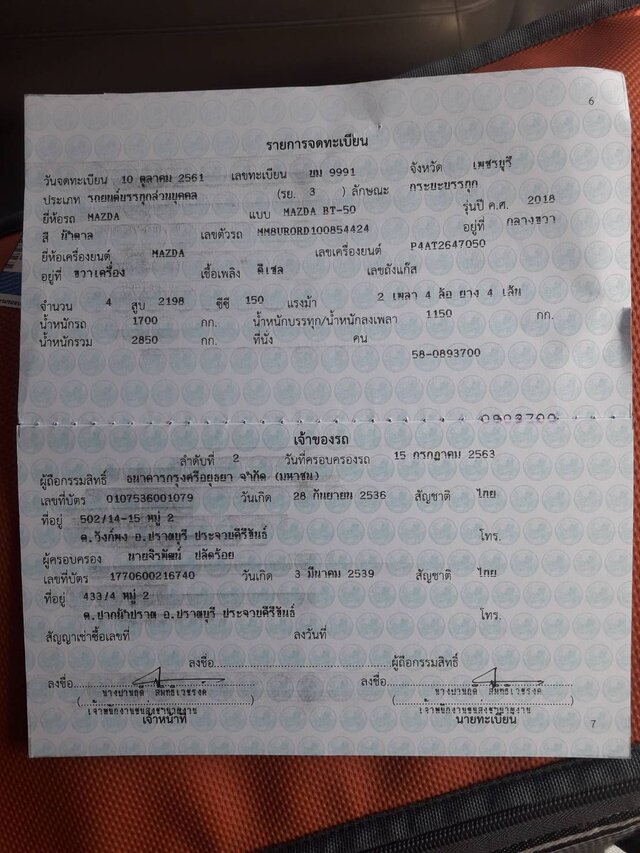 6
รายการจดทะเบียน
วันจดทะเบียน 10 ตุลาคม 2561 เลขทะเบียน ยม 9991 จังหวัด เพชรบุรี
ประเภท รถยนต์บรรทุกส่วนบุคคล (รย. 3 ) ลักษณะ กระบะบรรทุก
ยี่ห้อรถ MAZDA แบบ MAZDA BT-50 รุ่นปี ค.ศ. 2018
สี น้ำตาล เลขตัวรถ MM8URORD100854424 อยู่ที่ กลางขวา
ยี่ห้อเครื่องยนต์ MAZDA เลขเครื่องยนต์ P4AT2647050
อยู่ที่ ขวาเครื่อง เชื้อเพลิง ดีเซล เลขถังแก๊ส
จำนวน 4 สูบ 2198 ซีซี 150 แรงม้า 2 เพลา 4 ล้อ ยาง 4 เส้น
น้ำหนักรถ 1700 กก. น้ำหนักบรรทุก/น้ำหนักลงเพลา 1150 กก.
น้ำหนักรวม 2850 กก. ที่นั่ง คน
58-0893700
0893700
เจ้าของรถ
ลำดับที่ 2 วันที่ครอบครองรถ 15 กรกฎาคม 2563
ผู้ถือกรรมสิทธิ์ ธนาคารกรุงศรีอยุธยา จำกัด (มหาชน)
เลขที่บัตร 0107536001079 วันเกิด 28 กันยายน 2536 สัญชาติ ไทย
ที่อยู่ 502/14-15 หมู่ 2
ต.วังก์พง อ.ปราณบุรี ประจวบคีรีขันธ์ โทร.
ผู้ครอบครอง นายจิรพัฒน์ ปลัดร้อย
เลขที่บัตร 1770600216740 วันเกิด 3 มีนาคม 2539 สัญชาติ ไทย
ที่อยู่ 433/4 หมู่ 2
ต.ปากน้ำปราณ อ.ปราณบุรี ประจวบคีรีขันธ์ โทร.
สัญญาเช่าซื้อเลขที่ ลงวันที่
ลงชื่อ ผู้ถือกรรมสิทธิ์
ลงชื่อ ลงชื่อ
เจ้าพนักงานขนส่งชำนาญงาน เจ้าพนักงานขนส่งชำนาญงาน
เจ้าหน้าที่ นายทะเบียน
7